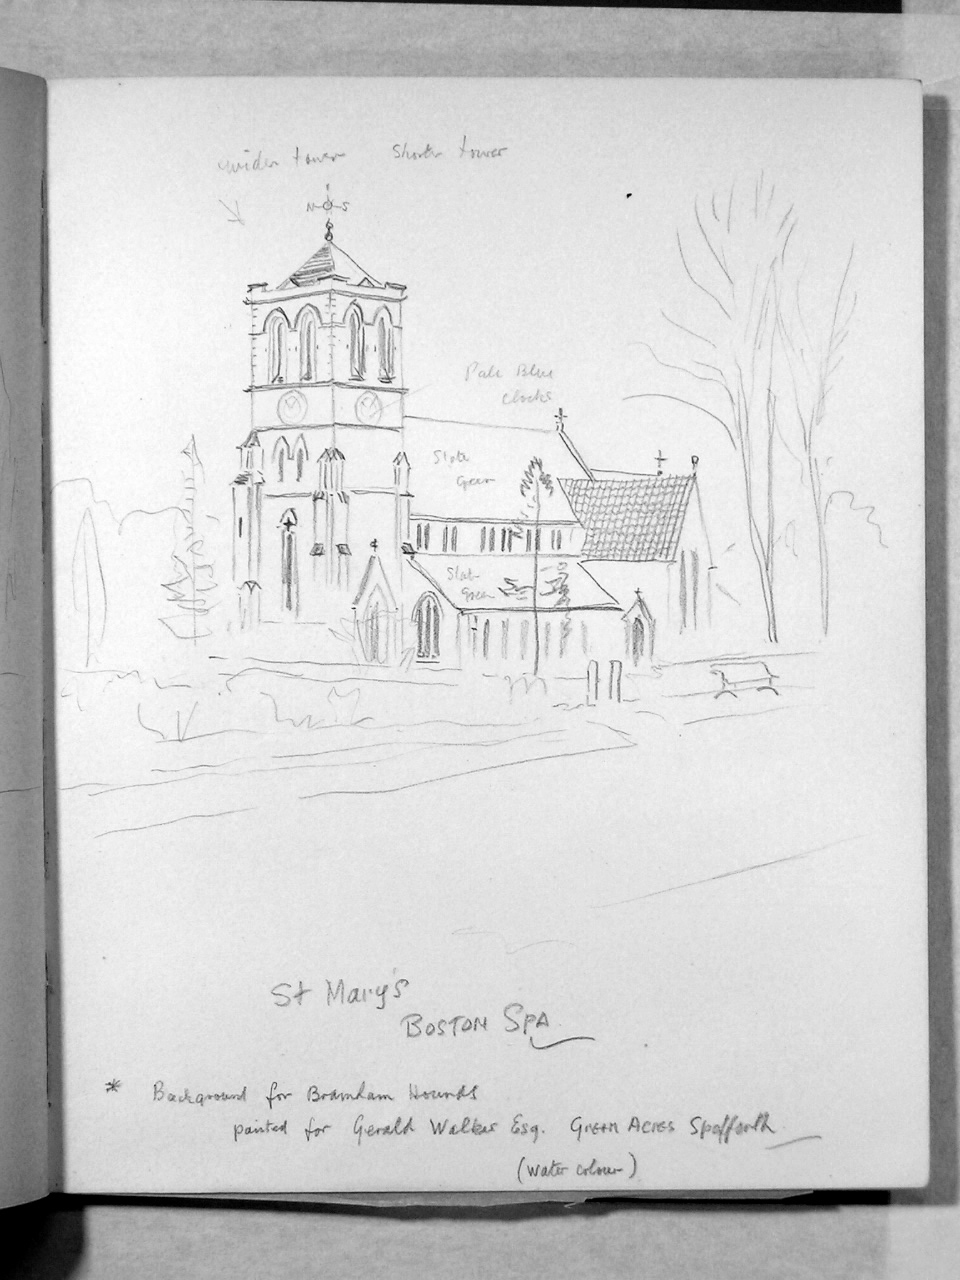 wider tower shorter tower
N S
Pale Blue
clocks
Slate
Green
Slate
Green
St Mary's
BOSTON SPA
* Background for Bramham Hounds
painted for Gerald Walker Esq. GREEN ACRES Spofforth
(water colour)